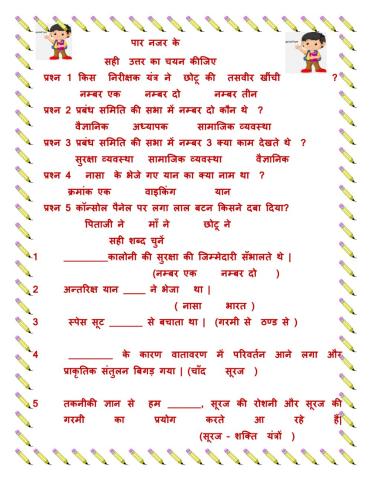 पार नजर के
सही उत्तर का चयन कीजिए
प्रश्न 1 किस निरीक्षक यंत्र ने छोटू की तसवीर खींची ?
नम्बर एक नम्बर दो नम्बर तीन
प्रश्न 2 प्रबंध समिति की सभा में नम्बर दो कौन थे ?
वैज्ञानिक अध्यापक सामाजिक व्यवस्था
प्रश्न 3 प्रबंध समिति की सभा में नम्बर 3 क्या काम देखते थे ?
सुरक्षा व्यवस्था सामाजिक व्यवस्था वैज्ञानिक
प्रश्न 4 नासा के भेजे गए यान का क्या नाम था ?
क्रमांक एक वाइकिंग यान
प्रश्न 5 कॉन्सोल पैनेल पर लगा लाल बटन किसने दबा दिया?
पिताजी ने माँ ने छोटू ने
सही शब्द चुनें
1 ________कालोनी की सुरक्षा की जिम्मेदारी सँभालते थे |
(नम्बर एक नम्बर दो )
2 अन्तरिक्ष यान ____ ने भेजा था |
( नासा भारत )
3 स्पेस सूट ______ से बचाता था | (गरमी से ठण्ड से )
4 ________ के कारण वातावरण में परिवर्तन आने लगा और
प्राकृतिक संतुलन बिगड़ गया | (चाँद सूरज )
5 तकनीकी ज्ञान से हम ______, सूरज की रोशनी और सूरज की
गरमी का प्रयोग करते आ रहे हैं|
(सूरज - शक्ति यंत्रों )